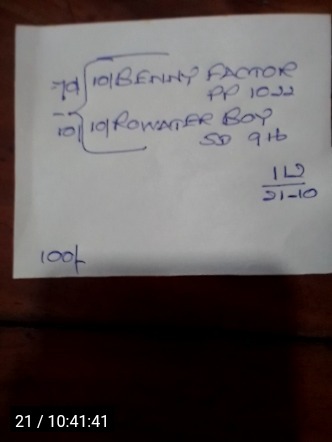 10/ BENNY FACTOR
PP 1022
10/ ROWATER BOY
SD 916
21-10
100/-
21 / 10:41:41